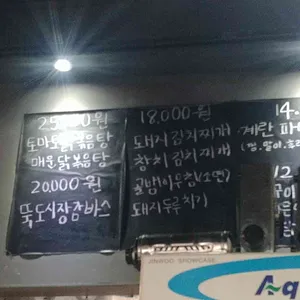 25,000원
토마토닭볶음탕
매운닭볶음탕
20,000원
뚝도시장잠바스
18,000원
돼지김치찌개
참치김치찌개
골뱅이무침(소면)
돼지두루치기
14.
계란 파
12
JINWOO SHOWCASE
Aq